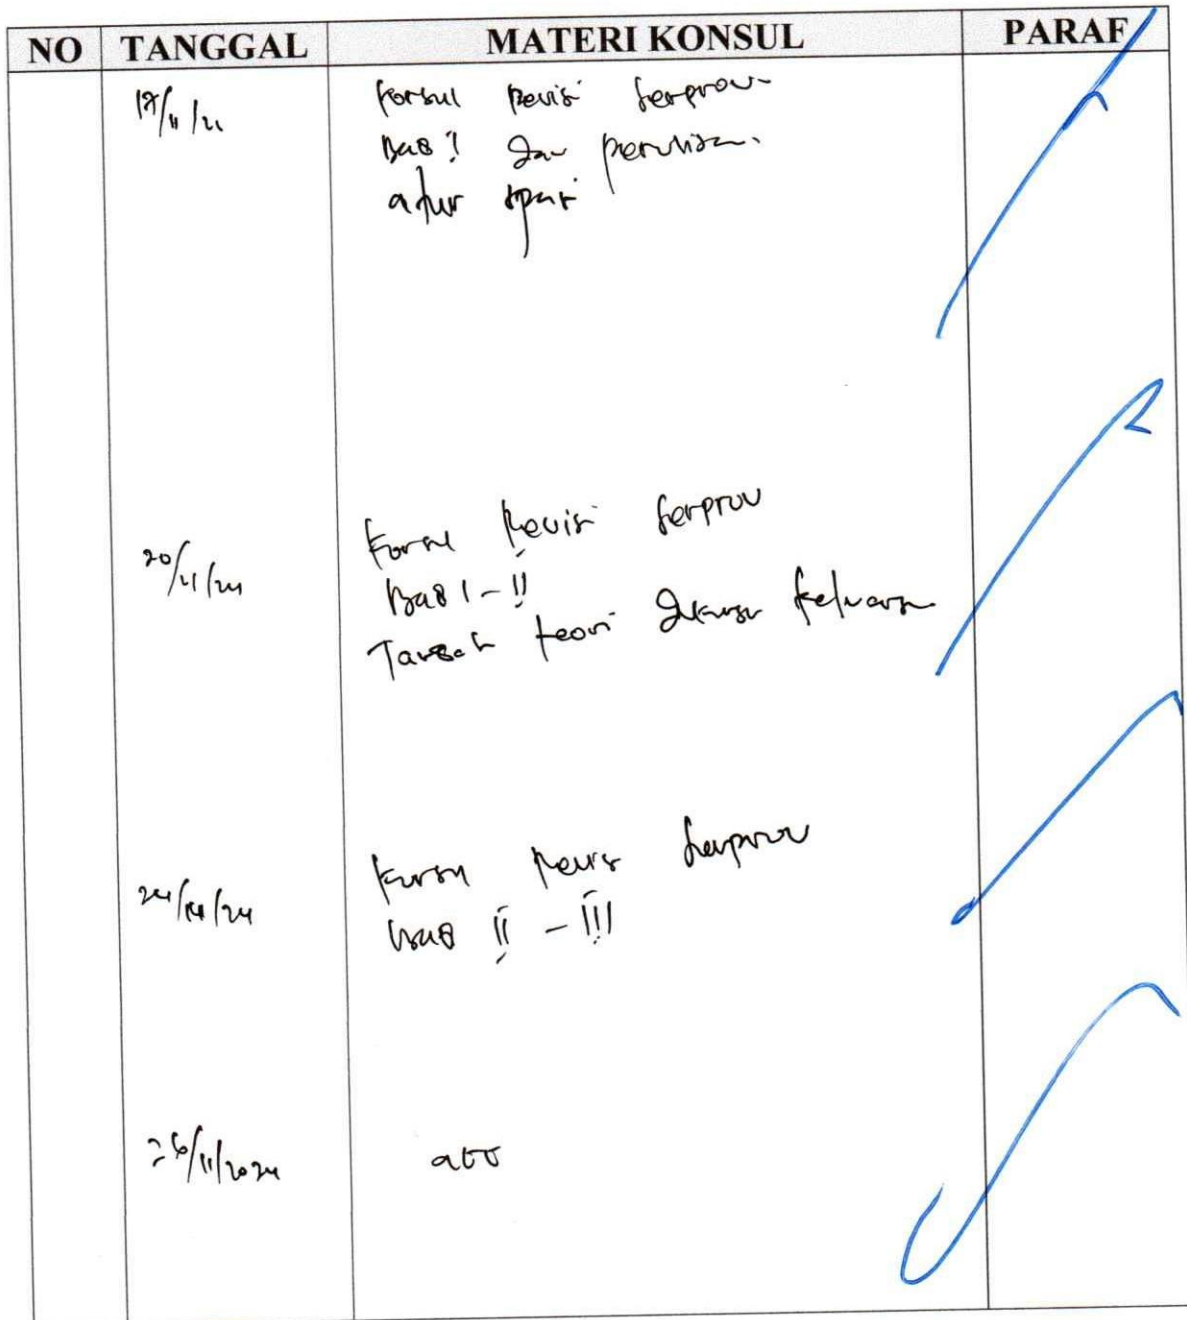 NO TANGGAL MATERI KONSUL PARAF
Konsul Revisi Sempro
Bab I dan penulisan.
atur spasi
20/11/24
Konsul Revisi Sempro
Bab I - II
Tambah teori dukungan keluarga
Konsul Revisi Sempro
Bab II - III
26/11/2024
acc